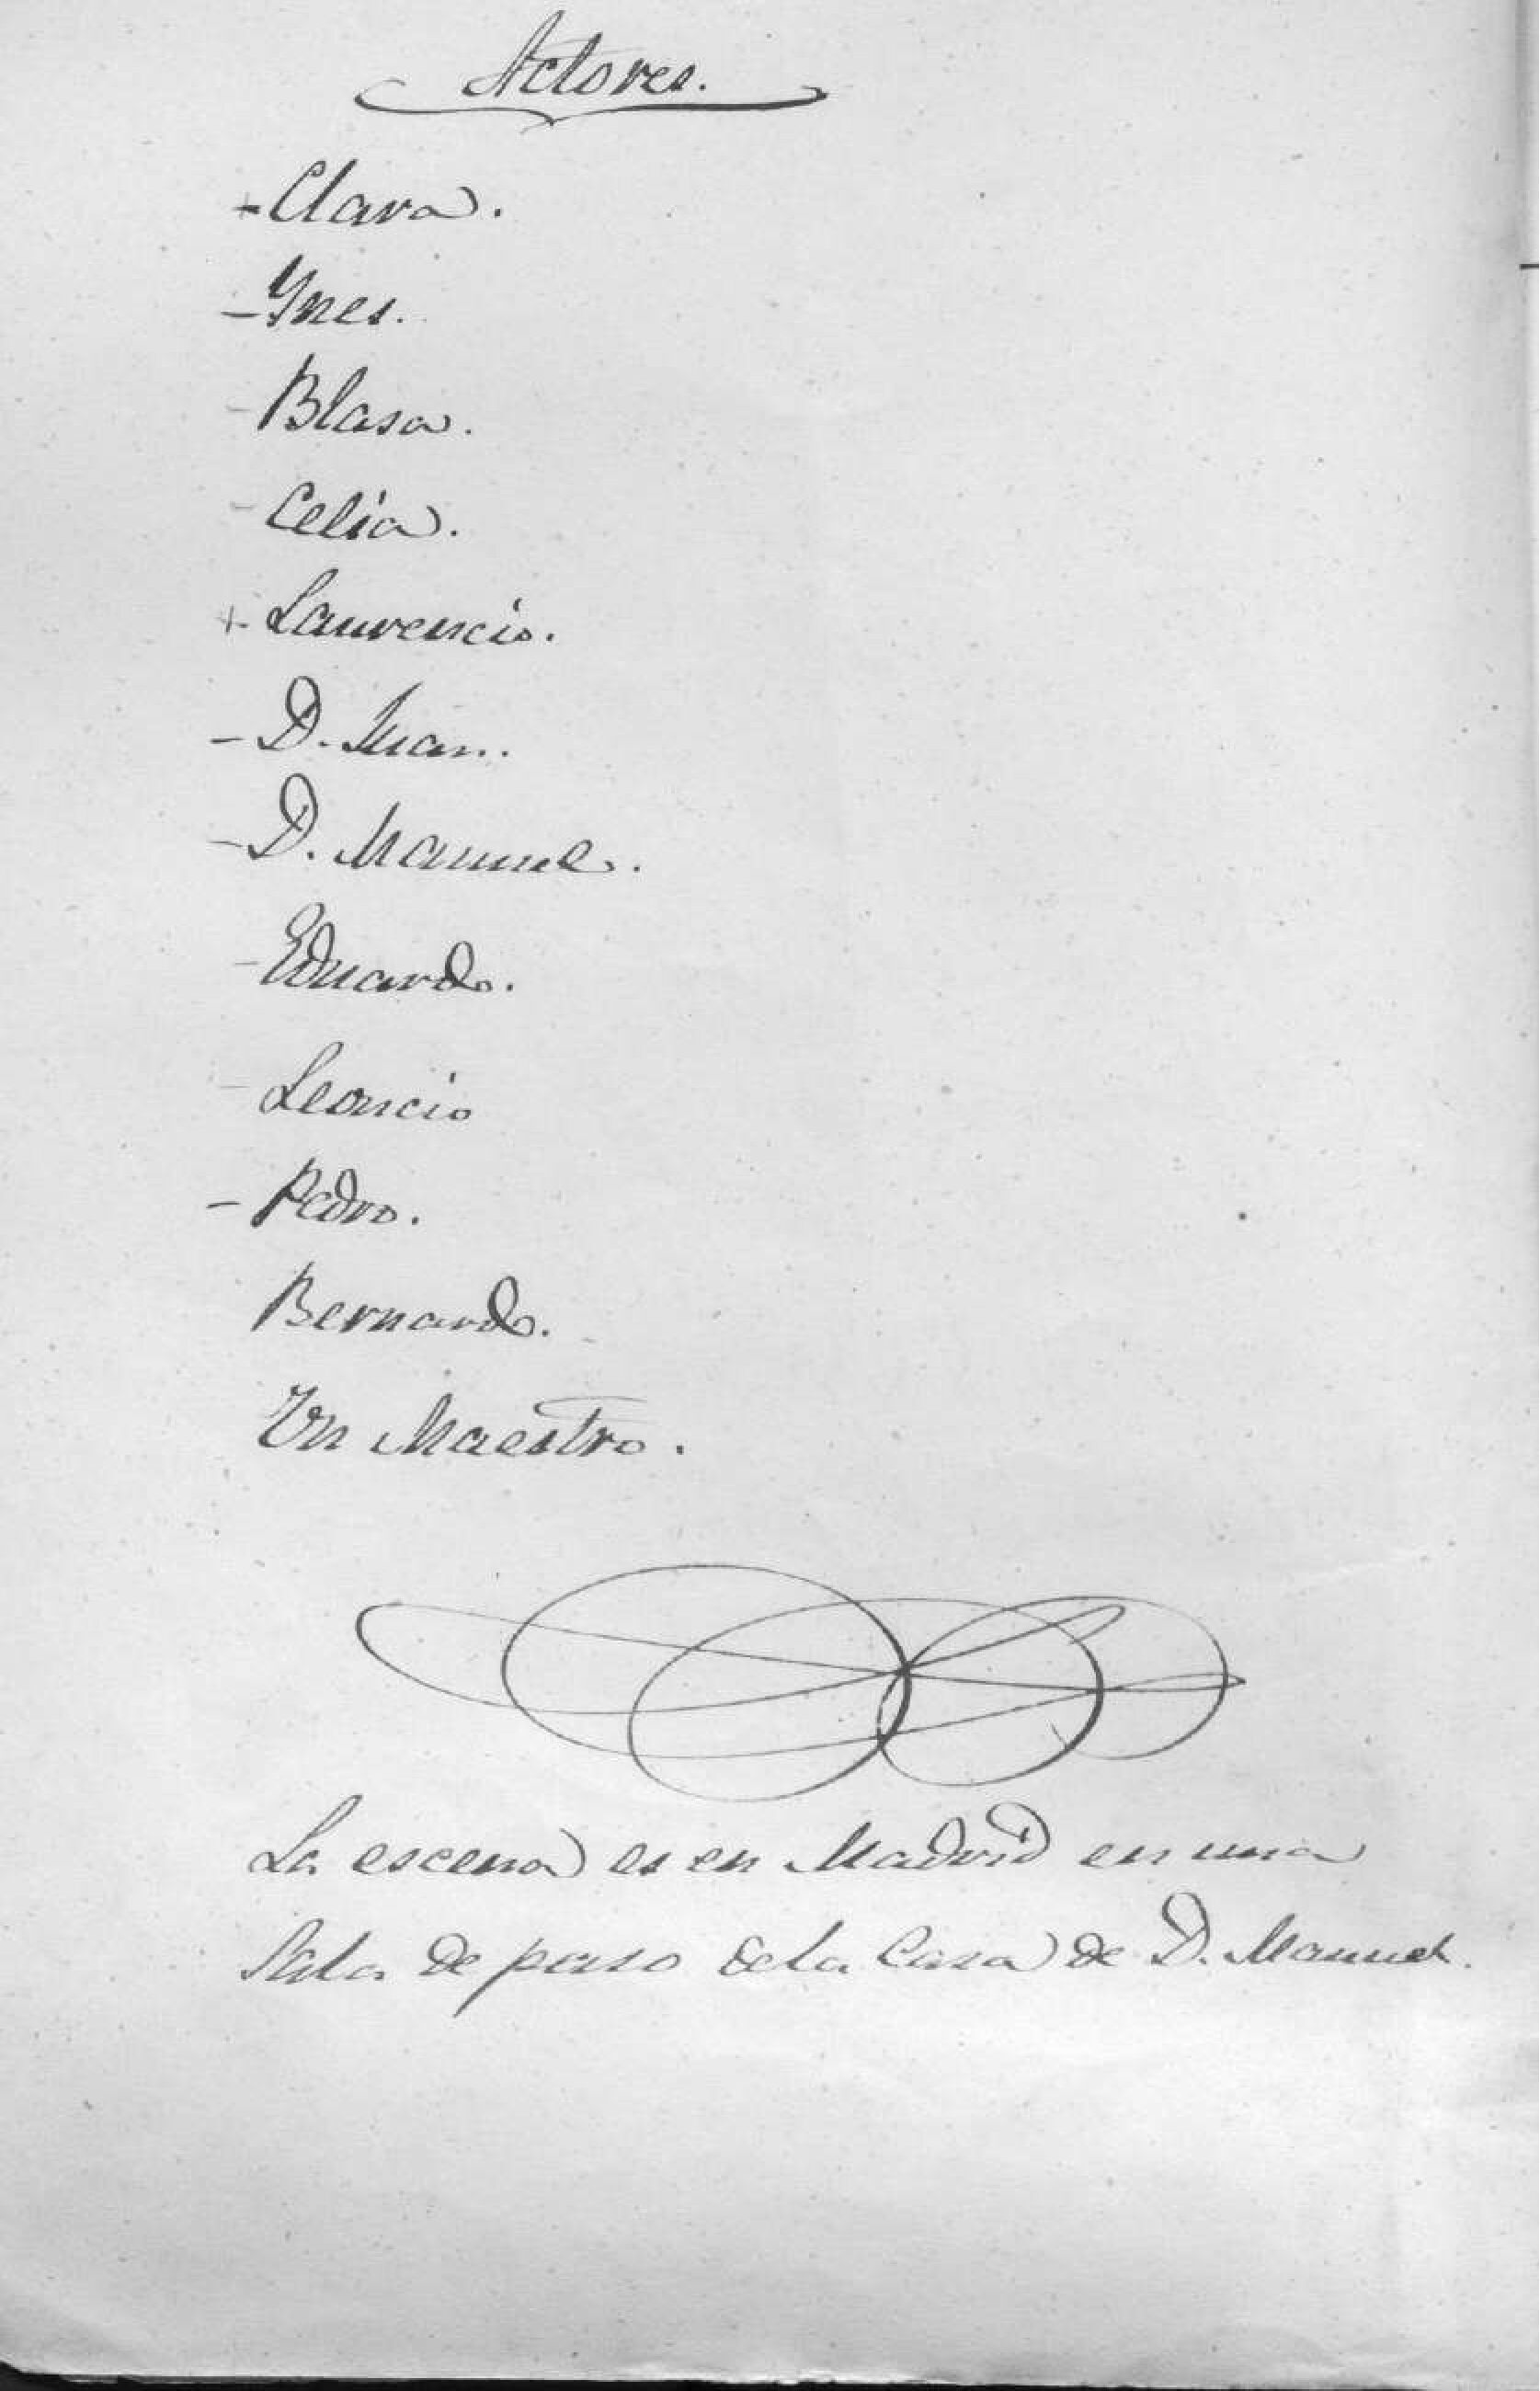 Actores.
- Clara.
- Ynes.
- Blasa.
- Celia.
+ Laurencio.
- D. Juan.
- D. Manuel.
- Eduardo.
- Leoncio
- Pedro.
Bernardo.
Un Maestro.
La escena es en Madrid en una
Sala de paso de la Casa de D. Manuel.